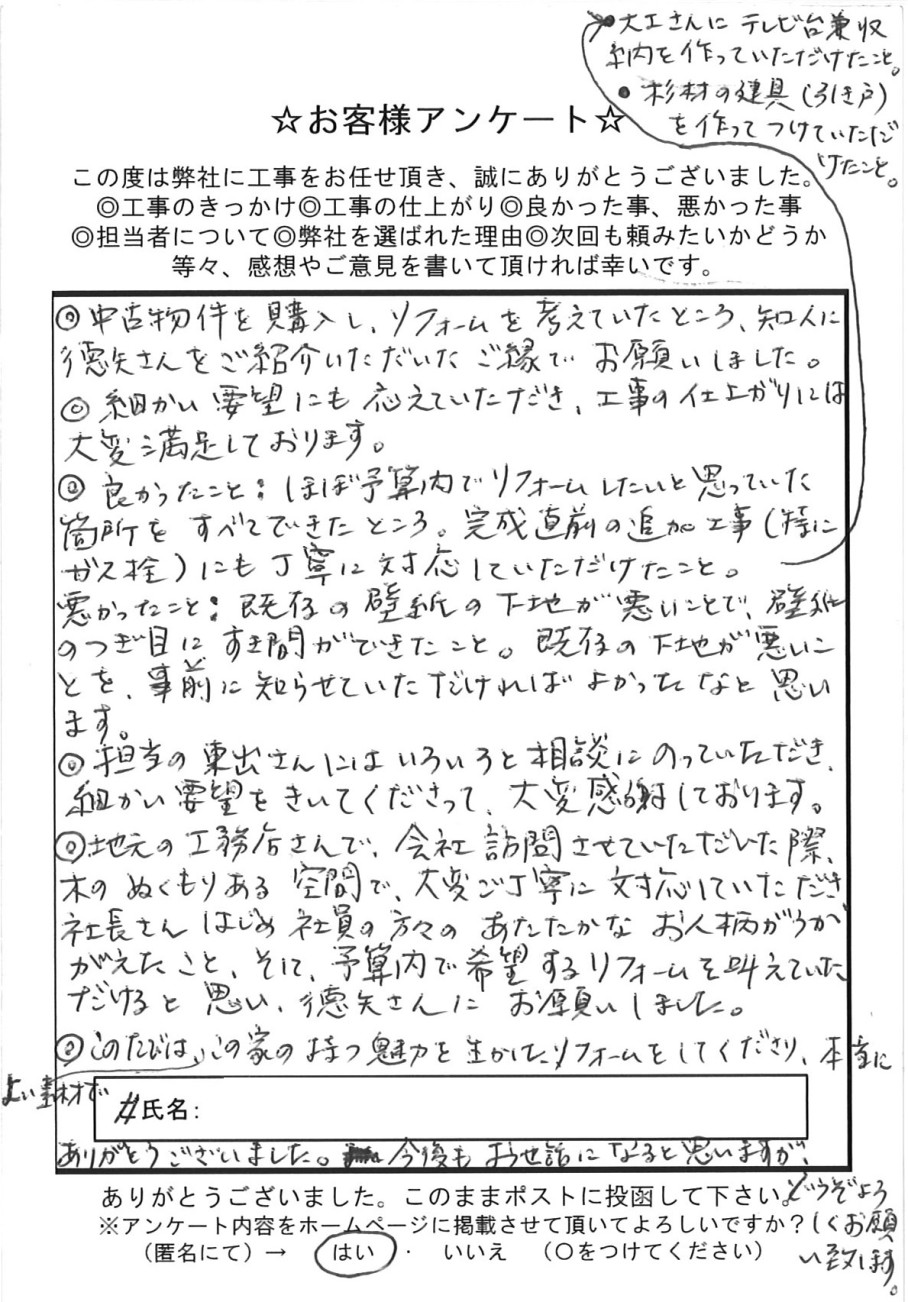 ・大工さんに テレビ台兼収
納を作っていただけたこと。
・杉材の建具(引き戸)
を作って つけていただ
けたこと。
☆お客様アンケート☆
この度は弊社に工事をお任せ頂き、誠にありがとうございました。
◎工事のきっかけ◎工事の仕上がり◎良かった事、悪かった事
◎担当者について◎弊社を選ばれた理由◎次回も頼みたいかどうか
等々、感想やご意見を書いて頂ければ幸いです。
◎中古物件を購入し、リフォームを考えていたところ、知人に
德矢さんをご紹介いただいたご縁で お願いしました。
◎細かい要望にも応えていただき、工事の仕上がりには
大変満足しております。
◎良かったこと:ほぼ予算内でリフォームしたいと思っていた
箇所を すべてできたところ。完成直前の追加工事(特に
ガス栓)にも丁寧に対応していただけたこと。
悪かったこと:既存の壁紙の下地が悪いことで、壁紙
のつぎ目にすき間ができたこと。既存の下地が悪いこ
とを、事前に知らせていただければよかったなと思い
ます。
◎担当の東出さんにはいろいろと相談にのっていただき、
細かい要望をきいてくださって、大変感謝しております。
◎地元の工務店さんで、会社訪問させていただいた際、
木のぬくもりある空間で、大変ご丁寧に対応していただき
社長さんはじめ社員の方々のあたたかなお人柄がうか
がえたこと、そして、予算内で希望するリフォームを叶えていた
だけると思い、德矢さんにお願いしました。
◎このたびは、この家の持つ魅力を生かしたリフォームをしてくださり、本当に
よい素材で
氏名:
ありがとうございました。今後もお世話になると思いますが、
ありがとうございました。このままポストに投函して下さい。
どうぞよろ
※アンケート内容をホームページに掲載させて頂いてよろしいですか?
しくお願
(匿名にて)→ はい ・ いいえ (○をつけてください)
い致します。